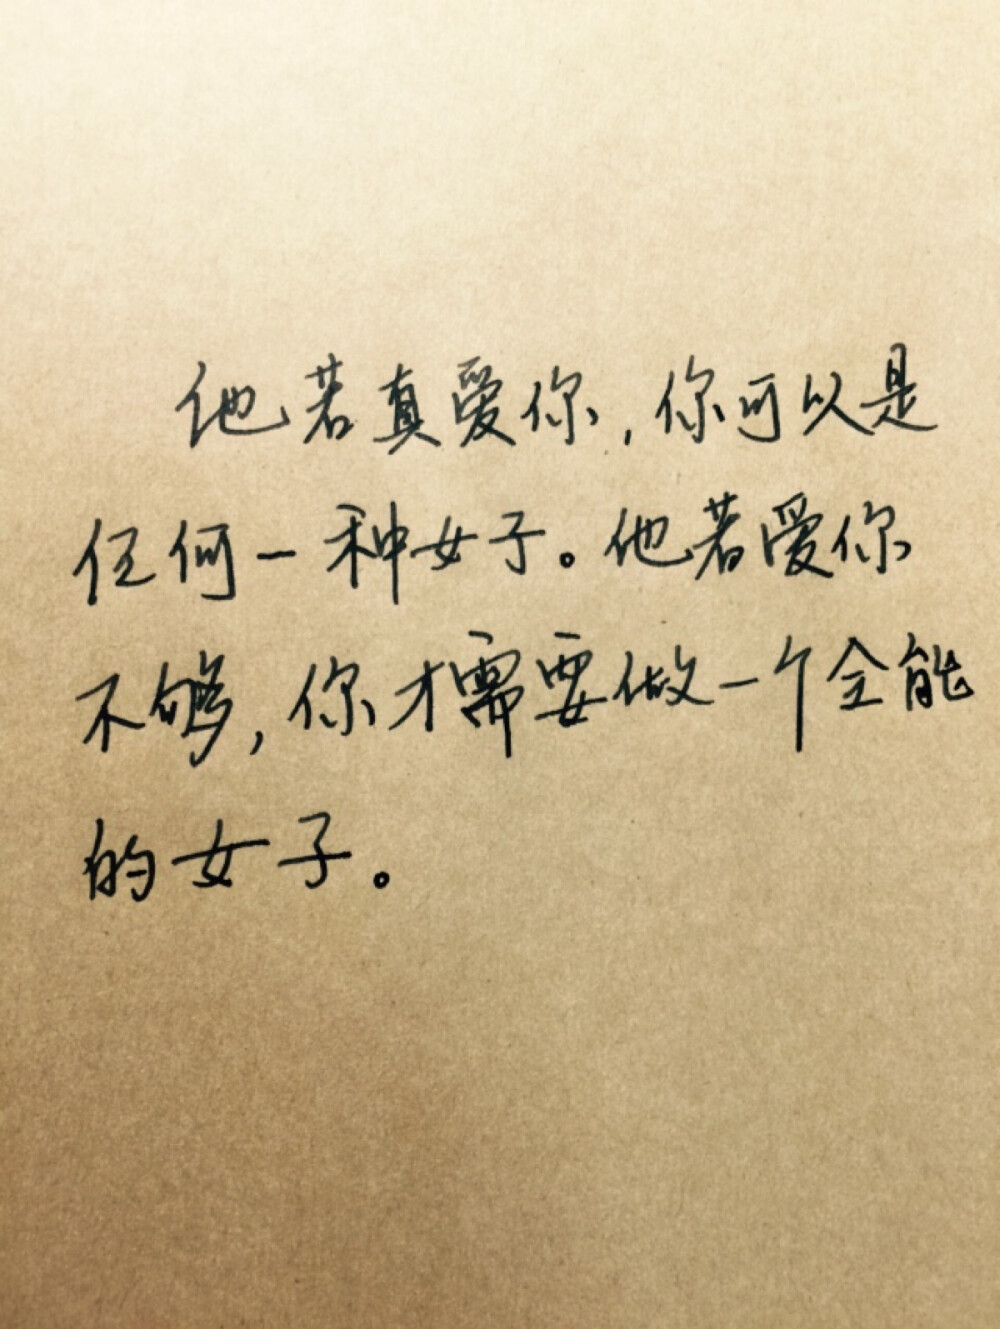 他若真爱你,你可以是
任何一种女子。他若爱你
不够,你才需要做一个全能
的女子。